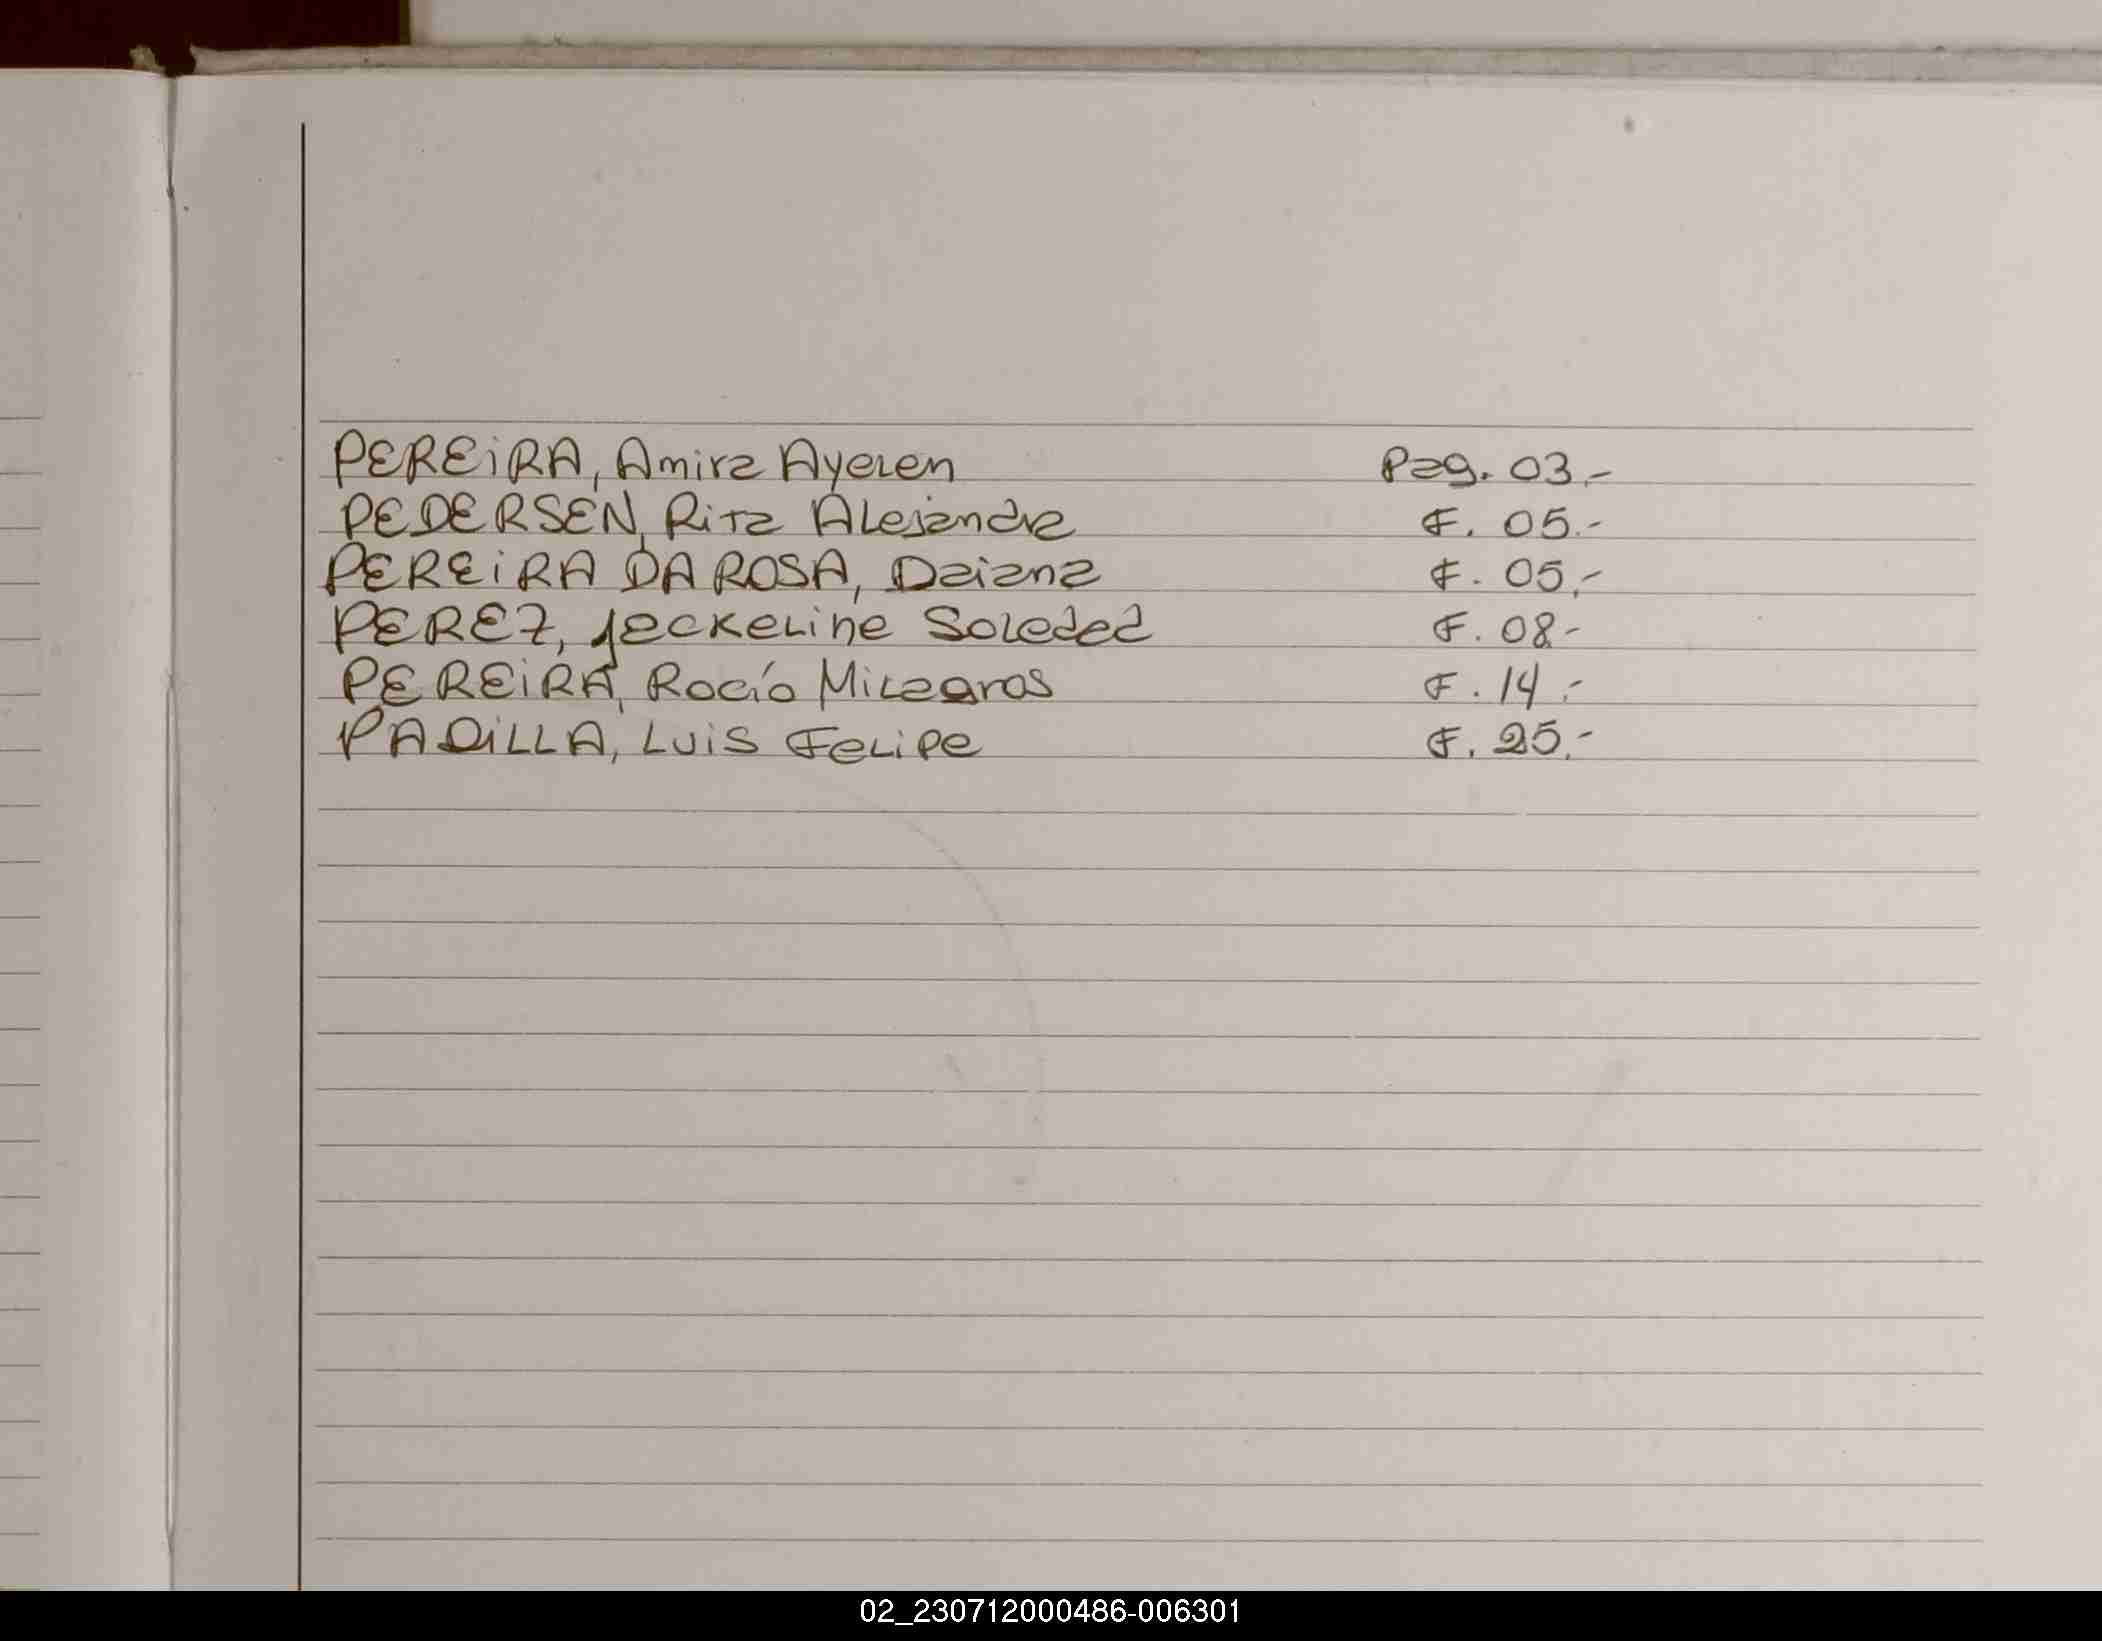 PEREiRA, Amira Ayelen Pag. 03.-
PEDERSEN, Rita Alejandra F. 05.-
PEREiRA DA ROSA, Daiana F. 05.-
PEREZ, Jackeline Soledad F. 08-
PEREiRA, Rocío Milagros F. 14.-
PADiLLA, Luis Felipe F. 25.-
02_230712000486-006301